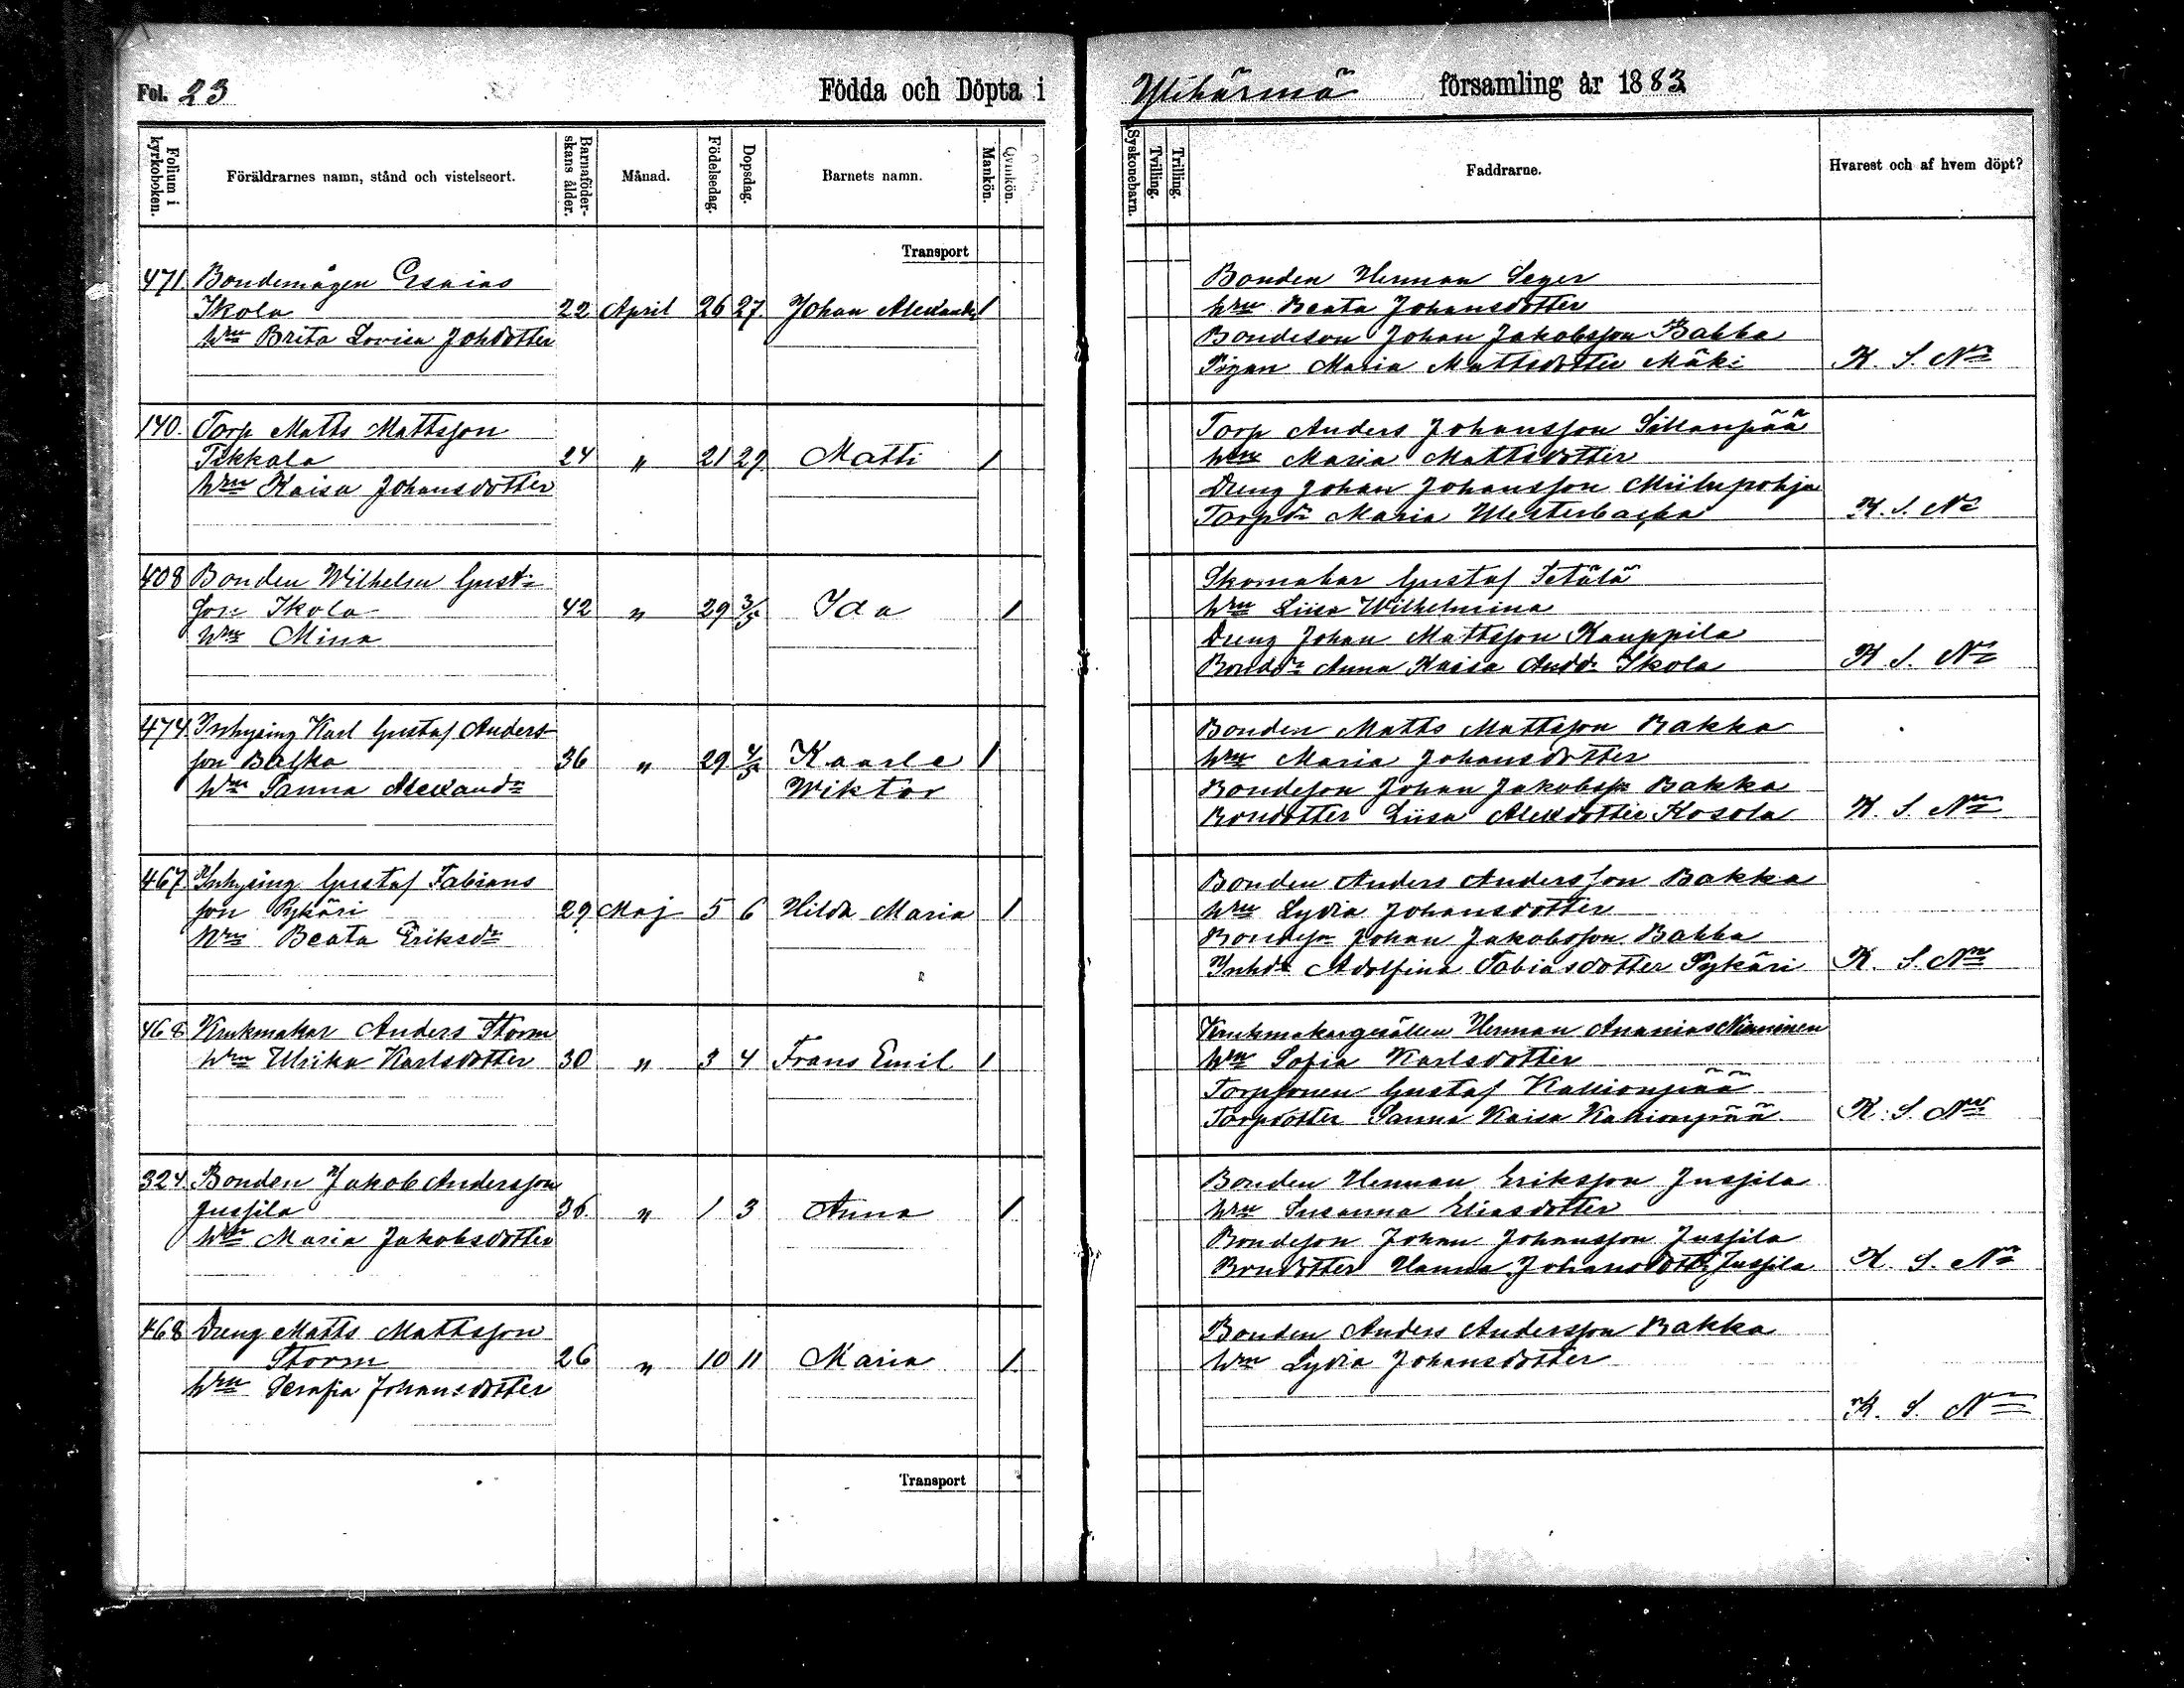 Fol. 23 Födda och Döpta i Ylihärmä församling år 1883
Folium i kyrkoboken. Föräldrarnes namn, stånd och vistelseort. Barnaföderskans ålder. Månad. Födelsedag. Dopsdag. Barnets namn. Mankön. Qvinkön. Syskonebarn. Tvilling. Trilling. Faddrarne. Hvarest och af hvem döpt?
Transport
471. Bondemågen Esaias
Ikola 22 April 26 27. Johan Alexander 1
hru Brita Lovisa Johdotter
Bonden Herman Seger
hru Beata Johansdotter
Bondeson Johan Jakobsson Bakka
Pigan Maria Mattsdotter Mäki K. S. Nn
140. Torp Matts Mattsson
Tikkala 24 " 21 29 Matti 1
hru Kaisa Johansdotter
Torp Anders Johansson Sillanpää
hru Maria Mattsdotter
Dreng Johan Johansson Miilupohja
Torpdr Maria Westerbacka K. S. Nn
408 Bonden Wilhelm Gust-
son Ikola 42 " 29 3/5 Ida 1
hru Mina
Skomakar Gustaf Setälä
hru Liisa Wilhelmina
Dreng Johan Mattsson Kauppila
Bonddr Anna Kaisa Andd. Ikola K S. Nn
474. Inhysing Karl Gustaf Anders-
son Bakka 36 " 29 4/5 Kaarle 1
hru Sanna Alexandr Wiktor
Bonden Matts Mattsson Bakka
hru Maria Johansdotter
Bondeson Johan Jakobss Bakka
Bondotter Liisa Alexdotter Kosola K. S. Nn
467. Inhysing Gustaf Fabians
son Pykäri 29 Maj 5 6 Hilda Maria 1
hru Beata Eriksdr
Bonden Anders Andersson Bakka
hru Lydia Johansdotter
Bondesn Johan Jakobsson Bakka
Inhdr Adolfina Fabiasdotter Pykäri K. S. Nn
468. Krukmakar Anders Storm
hru Ulrika Karlsdotter 30 " 3 4 Frans Emil 1
Krukmakargesällen Herman Ananias Nieminen
hru Sofia Karlsdotter
Torpsonen Gustaf Kallionpää
Torpdotter Sanna Kaisa Kallionpää K. S. Nn
324. Bonden Jakob Andersson
Jussila 36 " 1 3 Anna 1
hru Maria Jakobsdotter
Bonden Herman Eriksson Jussila
hru Susanna Eliasdotter
Bondeson Johan Johansson Jussila
Bondotter Hanna Johansdottr Jussila K. S. Nn
468 Dreng Matts Mattsson
Storm 26 " 10 11 Maria 1
hru Serafia Johansdotter
Bonden Anders Andersson Bakka
hru Lydia Johansdotter
K. S. Nn
Transport